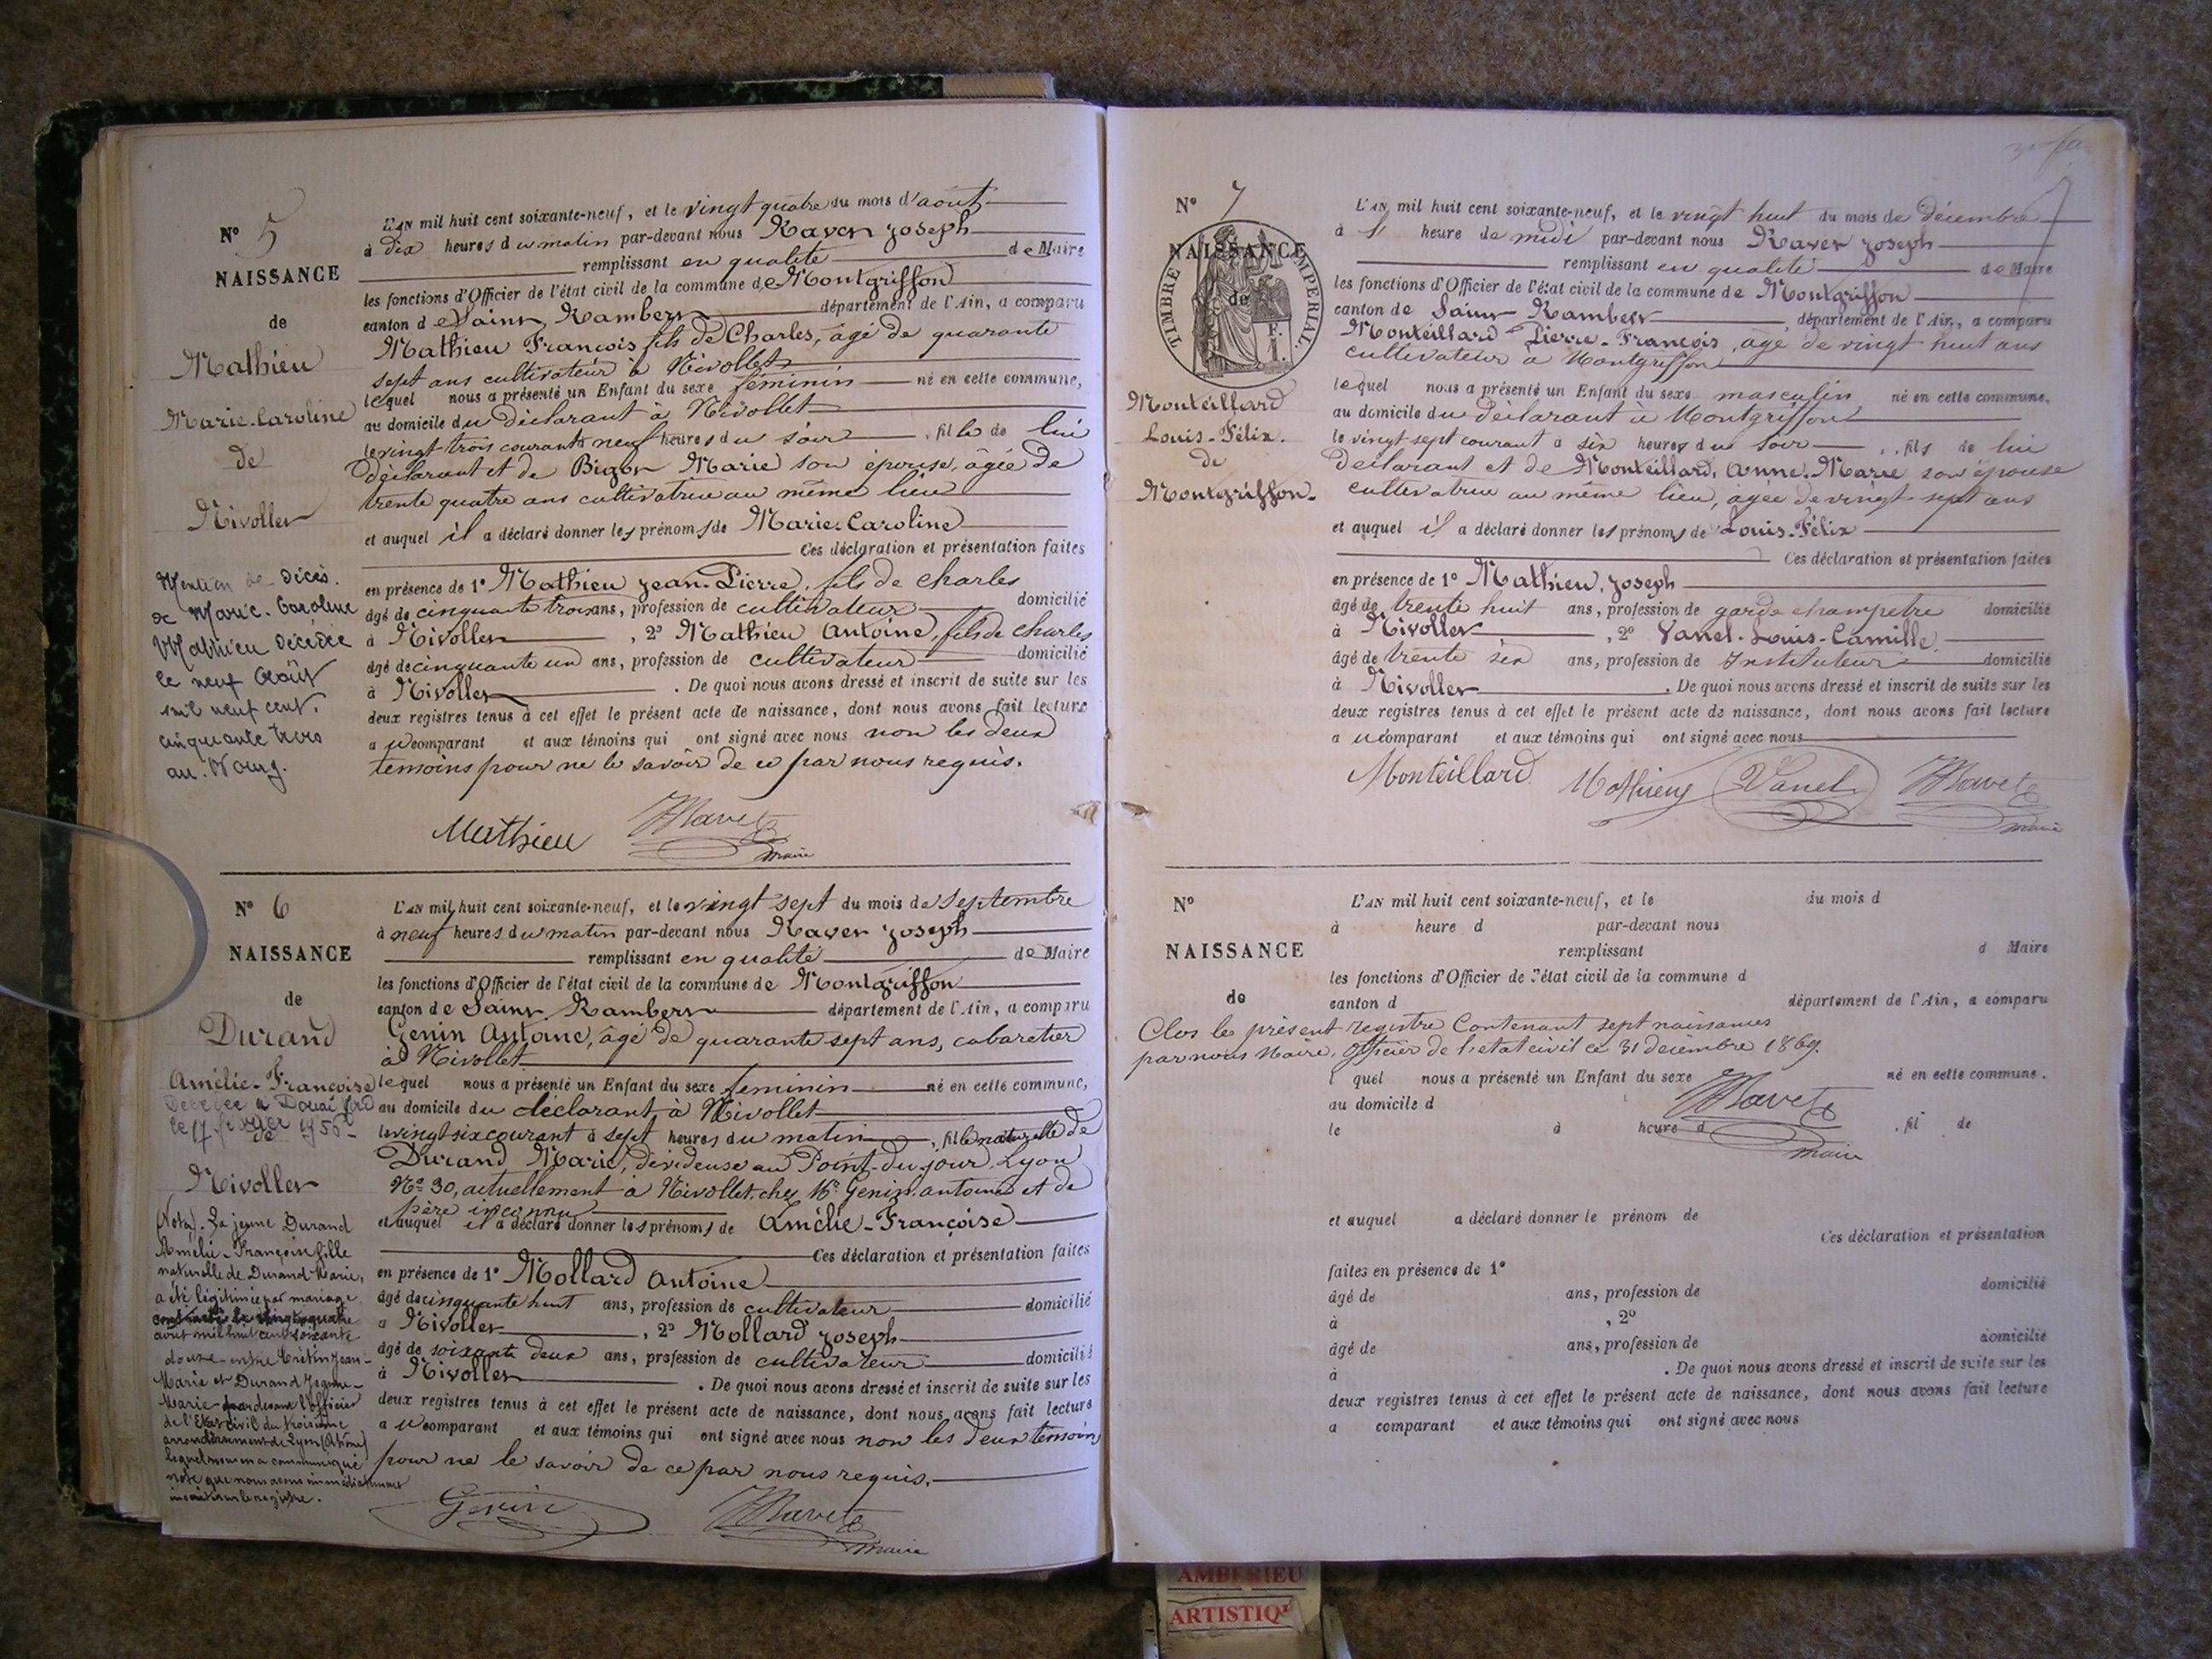 N° 5
NAISSANCE
de
Mathieu
Marie-Caroline
de
Nivollet
Mention de Décès.
de Marie-Caroline
Mathieu décédée
le neuf Août
mil neuf cent
cinquante trois
au
L'AN mil huit cent soixante-neuf, et le vingt quatre du mois d'août
à dix heures du matin par-devant nous Ravet Joseph
remplissant en qualité de Maire
les fonctions d'Officier de l'état civil de la commune de Montgriffon
canton de Saint Rambert département de l'Ain, a comparu
Mathieu François fils de Charles, âgé de quarante
sept ans cultivateur à Nivollet
lequel nous a présenté un Enfant du sexe féminin né en cette commune,
au domicile du déclarant à Nivollet
le vingt-trois courant à neuf heures du soir, fille de lui
déclarant et de Marie son épouse, âgée de
trente quatre ans cultivatrice au même lieu
et auquel il a déclaré donner les prénoms de Marie-Caroline
Ces déclaration et présentation faites
en présence de 1° Mathieu Jean-Pierre, fils de Charles
âgé de cinquante trois ans, profession de cultivateur domicilié
à Nivollet, 2° Mathieu Antoine, fils de Charles
âgé de cinquante un ans, profession de cultivateur domicilié
à Nivollet. De quoi nous avons dressé et inscrit de suite sur les
deux registres tenus à cet effet le présent acte de naissance, dont nous avons fait lecture
a u comparant et aux témoins qui ont signé avec nous non les deux
témoins pour ne le savoir de ce par nous requis.
Mathieu Ravet
maire
N° 6
NAISSANCE
de
Durand
Amélie-Françoise
Décédée à Douai
le 17 février
de
Nivollet
(Nota). La jeune Durand
Amélie-Françoise fille
naturelle de Durand Marie,
a été légitimée par mariage
contracté le vingt quatre
août mil huit cent soixante
douze entre Crétin Jean-
Marie et Durand Jeanne-
Marie par devant l'officier
de l'Etat civil du troisième
arrondissement de Lyon (Rhône)
lequel nous en a communiqué
note que nous avons immédiatement
inscrite sur le registre.
L'AN mil huit cent soixante-neuf, et le vingt sept du mois de Septembre
à neuf heures du matin par-devant nous Ravet Joseph
remplissant en qualité de Maire
les fonctions d'Officier de l'état civil de la commune de Montgriffon
canton de Saint Rambert département de l'Ain, a comparu
Genin Antoine, âgé de quarante sept ans, cabaretier
à Nivollet
lequel nous a présenté un Enfant du sexe féminin né en cette commune,
au domicile du déclarant à Nivollet
le vingt six courant à sept heures du matin, fille naturelle de
Durand Marie, dévideuse au Point-du-jour, Lyon
N° 30, actuellement à Nivollet chez Mr Genin Antoine et de
père inconnu
et auquel il a déclaré donner les prénoms de Amélie-Françoise
Ces déclaration et présentation faites
en présence de 1° Mollard Antoine
âgé de cinquante huit ans, profession de cultivateur domicilié
à Nivollet, 2° Mollard Joseph
âgé de soixante deux ans, profession de cultivateur domicilié
à Nivollet. De quoi nous avons dressé et inscrit de suite sur les
deux registres tenus à cet effet le présent acte de naissance, dont nous avons fait lecture
a u comparant et aux témoins qui ont signé avec nous non les deux témoins
pour ne le savoir de ce par nous requis.
Genin Ravet
maire
N° 7
NAISSANCE
de
TIMBRE IMPERIAL.
Monteillard
Louis-Félix.
de
Montgriffon.
L'AN mil huit cent soixante-neuf, et le vingt huit du mois de décembre
à heure de midi par-devant nous Ravet Joseph
remplissant en qualité de Maire
les fonctions d'Officier de l'état civil de la commune de Montgriffon
canton de Saint Rambert, département de l'Ain, a comparu
Monteillard Pierre-François, âgé de vingt huit ans
cultivateur à Montgriffon
lequel nous a présenté un Enfant du sexe masculin né en cette commune,
au domicile du déclarant à Montgriffon
le vingt-sept courant à six heures du soir, fils de lui
déclarant et de Monteillard, Anne-Marie son épouse
cultivatrice au même lieu, âgée de vingt-sept ans
et auquel il a déclaré donner les prénoms de Louis-Félix
Ces déclaration et présentation faites
en présence de 1° Mathieu, Joseph
âgé de trente huit ans, profession de garde champetre domicilié
à Nivollet, 2° Vanel-Louis-Camille.
âgé de trente six ans, profession de Instituteur domicilié
à Nivollet. De quoi nous avons dressé et inscrit de suite sur les
deux registres tenus à cet effet le présent acte de naissance, dont nous avons fait lecture
a u comparant et aux témoins qui ont signé avec nous
Monteillard Mathieu Vanel Ravet
maire
N°
NAISSANCE
de
L'AN mil huit cent soixante-neuf, et le du mois d
à heure d par-devant nous
remplissant d Maire
les fonctions d'Officier de l'état civil de la commune d
canton d département de l'Ain, a comparu
Clos le présent registre contenant sept naissances
par nous Maire, officier de l'état civil ce 31 décembre 1869.
l quel nous a présenté un Enfant du sexe né en cette commune.
au domicile d
Ravet
le à heure d , fil de
maire
et auquel a déclaré donner le prénom de
Ces déclaration et présentation
faites en présence de 1°
âgé de ans, profession de domicilié
à , 2°
âgé de ans, profession de domicilié
à . De quoi nous avons dressé et inscrit de suite sur les
deux registres tenus à cet effet le présent acte de naissance, dont nous avons fait lecture
a comparant et aux témoins qui ont signé avec nous
AMBERIEU
ARTISTIQ